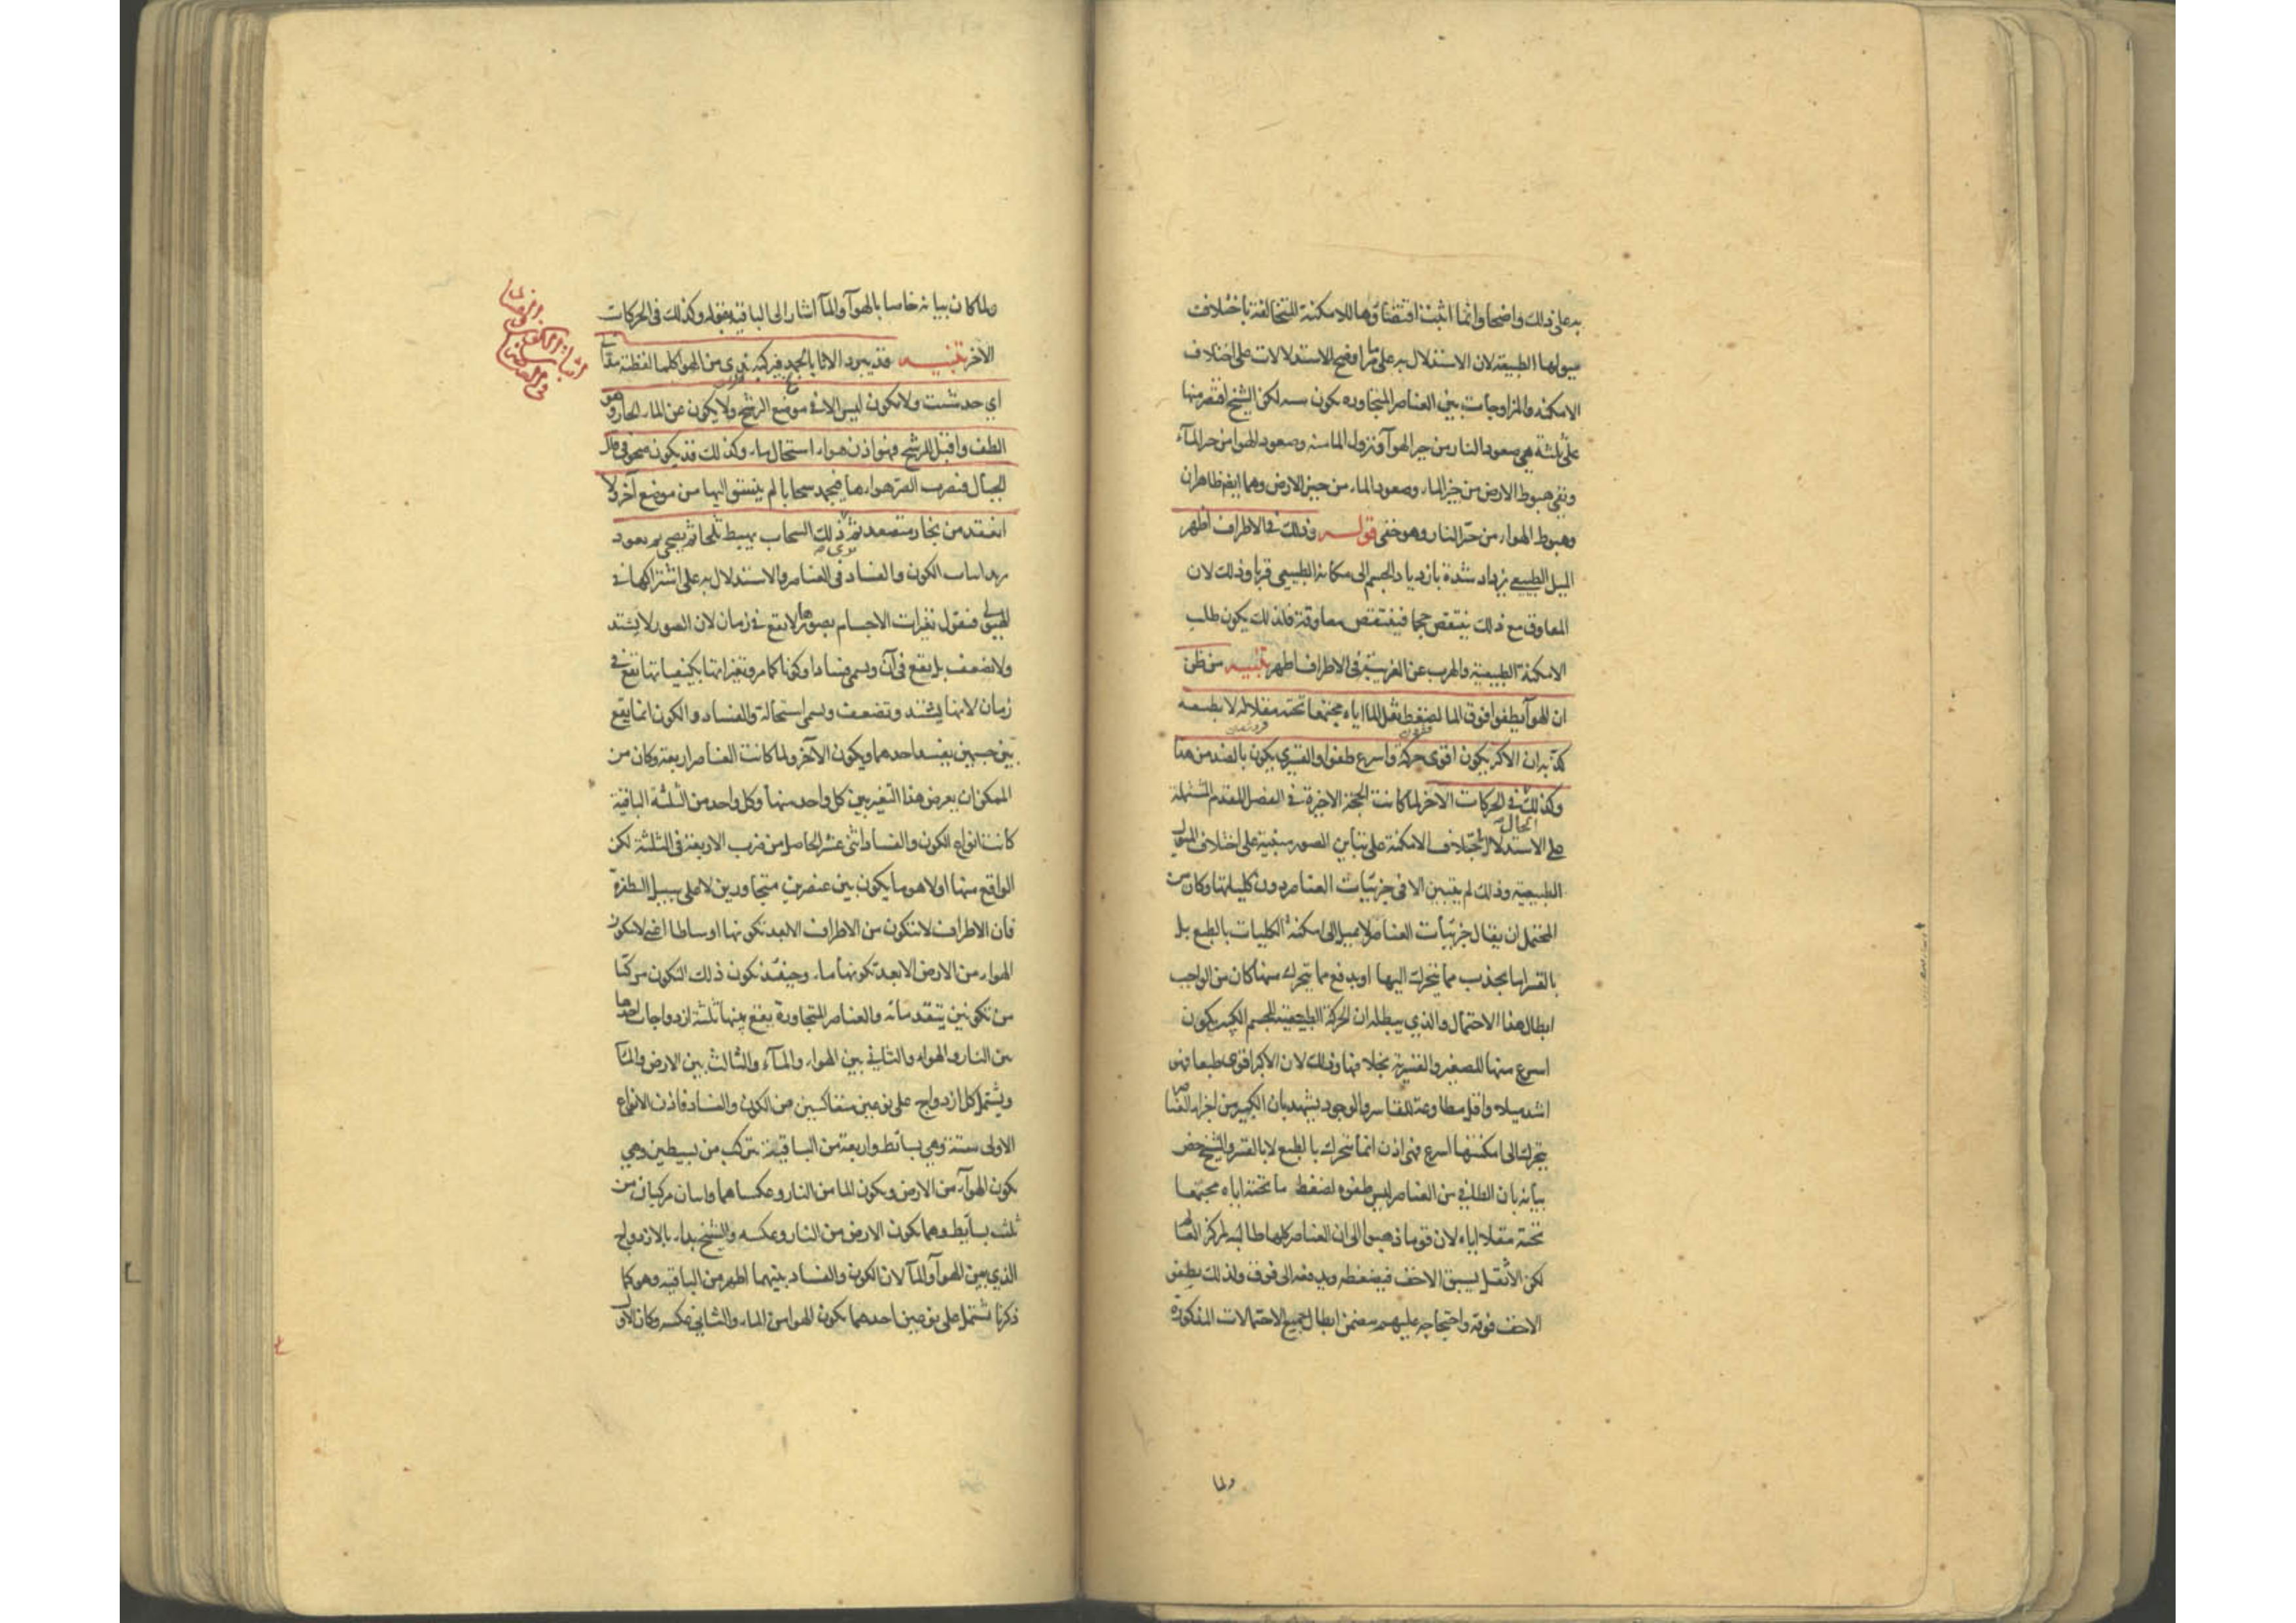 به على ذلك واضحا وانما اثبت اقتضاؤها للامكنة المتخالفة باختلاف
ميولها الطبيعية لان الاستدلال به على ما مر اوضح الاستدلالات على اختلاف
الامكنة والمزاوجات بين العناصر المتجاورة يكون ستة لكن الشيخ اقتصر منها
على ثلثة هي صعود النار من حيز الهوآ ونزول الما منه وصعود الهوا من حيز المآء
وبقى هبوط الارض من حيز الماء وصعود الماء من حيز الارض وهما ايضا ظاهران
وهبوط الهواء من حيز النار وهو خفى قولـه وذلك فى الاطراف اظهر
الميل الطبيعى يزداد شدة بازدياد الجسم الى مكانه الطبيعى قربا وذلك لان
المعاوق مع ذلك ينتقص حجما فينتقص معاوقته فلذلك يكون طلب
الامكنة الطبيعية والهرب عن الغريبة فى الاطراف اظهر تنبيـه من ظن
ان الهوآ يطفوا فوق الما لضغط ثقل الما اياه مجتمعا تحته مقلا له لا بطبعه
كذبه ان الاكبر يكون اقوى حركة واسرع طفوا والقسرى يكون بالضد من هذا
وكذلك فى الحركات الاخر لما كانت الحجة الاخيرة فى الفصل المتقدم المشتملة
على الاستدلال باختلاف الامكنة على تباين الصور مبنية على اختلاف الميول
الطبيعية وذلك لم يتبين الا فى جزئيات العناصر دون كلياتها وكان من
المحتمل ان يقال جزئيات العناصر لا تميل الى امكنة الكليات بالطبع بل
بالقسر اما بجذب مما يتحرك اليها او بدفع مما يتحرك منها كان من الواجب
ابطال هذا الاحتمال والذي يبطله ان الحركة الطبيعية للجسم الكبير يكون
اسرع منها للصغير والقسرية بخلافها وذلك لان الاكبر اقوى طبعا فهو
اشد ميلا واقل مطاوعة للقاسر والوجود يشهد بان الكبير من اجزاء العناصر
يتحرك الى امكنتها اسرع فهى اذن انما تتحرك بالطبع لا بالقسر والشيخ خص
بيانه بان الطافى من العناصر ليس طفوه لضغط ما تحته اياه مجتمعا
تحته مقلا اياه لان قوما ذهبوا الى ان العناصر كلها طالبة لمركز العالم
لكن الاثقل يسبق الاخف فيضغطه ويدفعه الى فوق ولذلك يطفو
الاخف فوقه واحتجاجه عليهم يتضمن ابطال جميع الاحتمالات المذكورة
ولما
ولما كان بيانه خاصا بالهوآ والمآ اشار الى الباقية بقوله وكذلك فى الحركات
الاخر تنبيـه قد يبرد الاناء بالجمد فيركبه ندى من الهوا كلما لقطته مد الى
اي حد شئت ولا يكون ليس الا فى موضع الرشح ولا يكون عن الماء الحار وهو
الطف واقبل للرشح فهو اذن هواء استحال ماء وكذلك قد يكون صحو فى قلل
الجبال فيضرب الصر هواءها فيجمد سحابا لم ينسق اليها من موضع آخر ولا
انعقد من بخار متصعد ثم ذلك السحاب يهبط ثلجا ثم يصحى ثم يعود
يريد اثبات الكون والفساد فى العناصر والاستدلال به على اشتراكها فى
الهيولى فنقول تغيرات الاجسام بصورها لا يقع فى زمان لان الصور لا يشتد
ولا يضعف بل يقع فى آن ويسمى فسادا وكونا كما مر وتغيراتها بكيفياتها تقع فى
زمان لانها يشتد وتضعف ويسمى استحالة والفساد والكون انما يقع
بين جسمين يفسد احدهما ويكون الآخر ولما كانت العناصر اربعة وكان من
الممكن ان يعرض هذا التغير بين كل واحد منها وكل واحد من الثلثة الباقية
كانت انواع الكون والفساد اثنى عشر الحاصل من ضرب الاربعة فى الثلثة لكن
الواقع منها اولا هو ما يكون بين عنصرين متجاورين لا على سبيل الطفرة
فان الاطراف لا تتكون من الاطراف الا بعد تكونها اوساطا اعنى لا يتكون
الهواء من الارض الا بعد تكونها ماء وحينئذ تكون ذلك التكون مركبا
من تكونين يتقدمانه والعناصر المتجاورة يقع بينها ثلثة ازدواجات احدها
بين النار والهواء والثانى بين الهواء والمآء والثالث بين الارض والمآ
ويشتمل كل ازدواج على نوعين متعاكسين من الكون والفساد فاذن الانواع
الاولى ستة وهي بسائط واربعة من الباقية تتركب من بسيطين وهي
يكون الهوآء من الارض ويكون الما من النار وعكساهما واثنان مركبان من
ثلث بسائط وهما يكون الارض من النار وعكسه والشيخ بدا بالازدواج
الذي بين الهوآ والمآ لان الكون والفساد بينهما اظهر من الباقية وهو كما
ذكرنا تشتمل على نوعين احدهما يكون الهوا من الماء والثانى عكسه وكان الاول